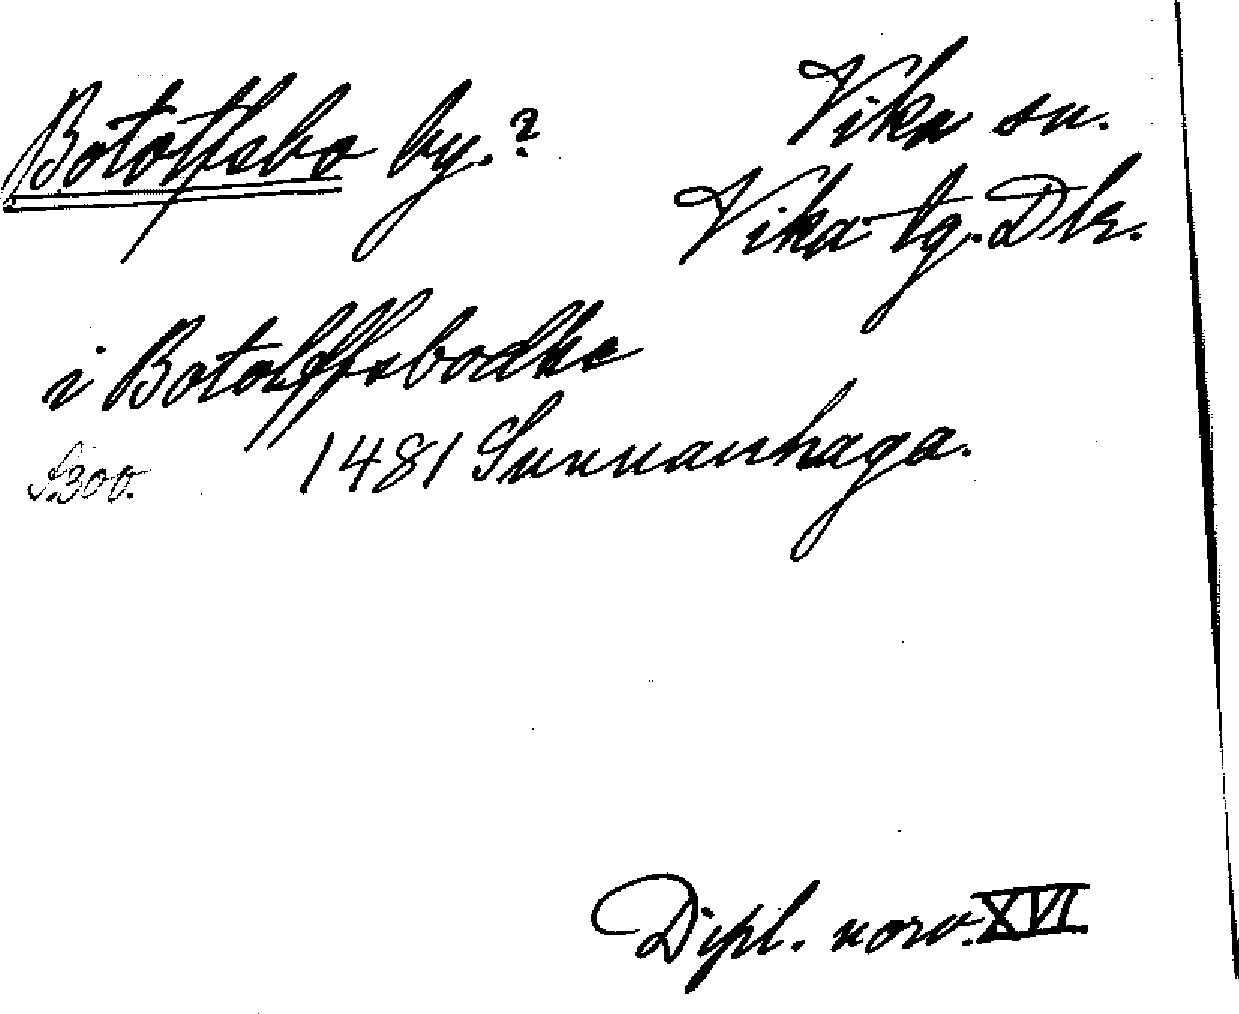 Botolfsbo by.?
Vika sn.
Vika tg. Dlr.
i Botolffsbodhe
S. 300. 1481 Sunnanhaga.
Dipl. norv. XVI.